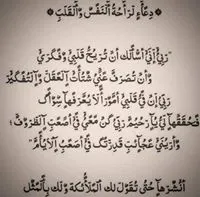 دعاء لراحة النفس والقلب
"ربي أني أسألك أن تريح قلبي وفكري
وأن تصرف عني شتات العقل والتفكير
ربي إن في قلبي أموراً لا يعرفها سواك
فحققها لي يا رحيم ربي كن معي في أصعب الظروف
وأريني عجائب قدرتك في أصعب الأيام"
أنشرها حتى تقول لك الملائكة ولك بالمثل